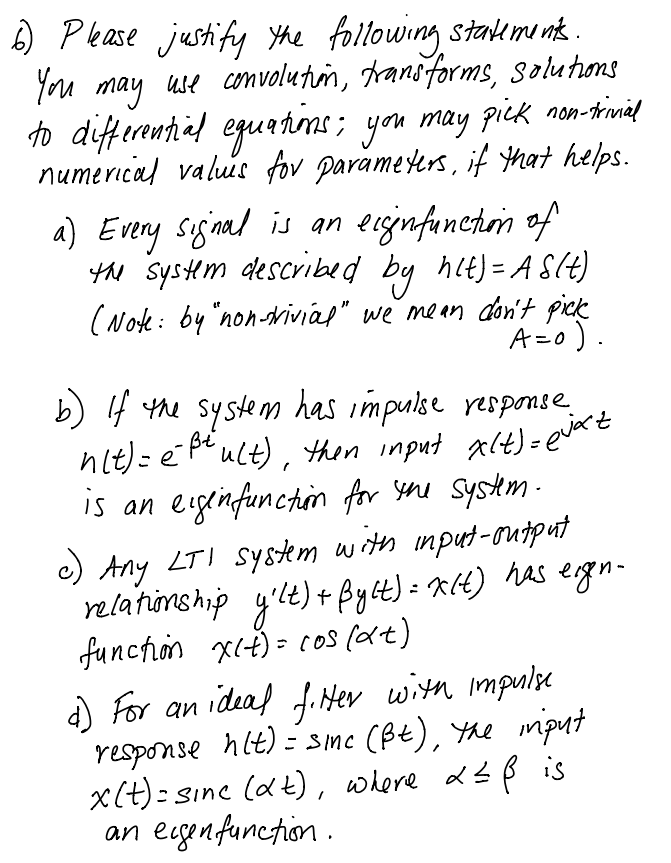 6) Please justify the following statements.
You may use convolution, transforms, solutions
to differential equations; you may pick non-trivial
numerical values for parameters, if that helps.
a) Every signal is an eigenfunction of
the system described by h(t) = A δ(t)
(Note: by "non-trivial" we mean don't pick
A=0).
b) If the system has impulse response
h(t) = e^{-βt} u(t), then input x(t) = e^{jαt}
is an eigenfunction for the system.
c) Any LTI system with input-output
relationship y'(t) + βy(t) = x(t) has eigen-
function x(t) = cos(αt)
d) For an ideal filter with impulse
response h(t) = sinc(βt), the input
x(t) = sinc(αt), where α ≤ β is
an eigenfunction.